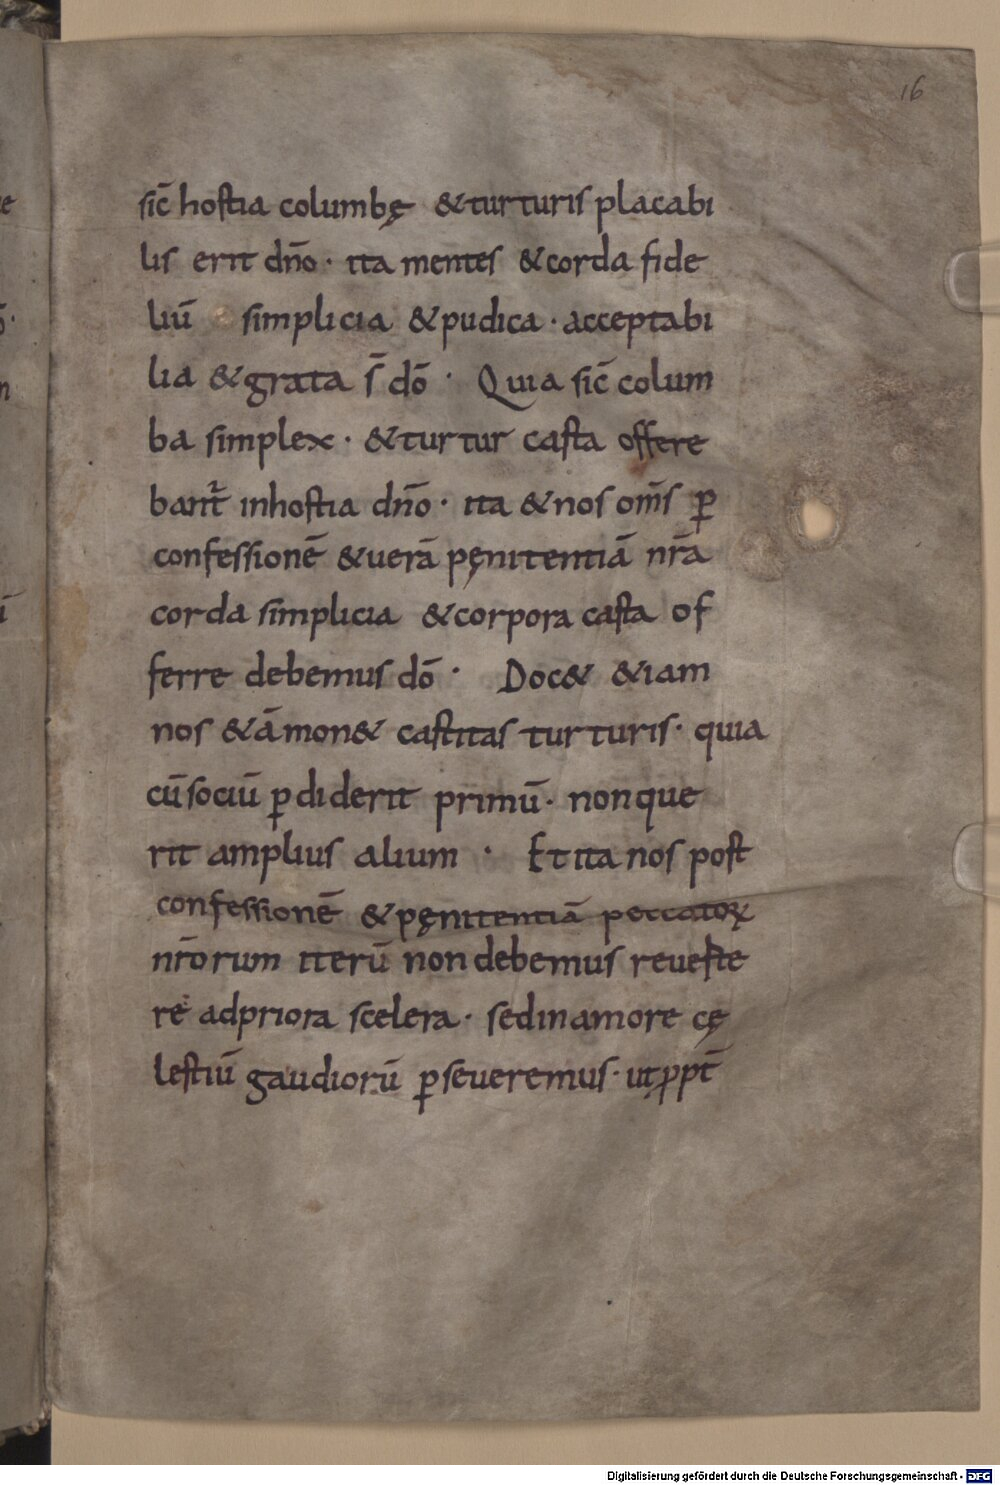 16
sic̄ hostia columbę & turturis placabi
lis erit dn̄o · ita mentes & corda fide
liū simplicia & pudica · acceptabi
lia & grata s̄ dō · Quia sic̄ colum
ba simplex · & turtur casta offere
bant̄ inhostia dn̄o · ita & nos om̄s ꝑ
confessionē & uerā pęnitentiā nr̄a
corda simplicia & corpora casta of
ferre debemus dō · Doc& &iam
nos & āmon& castitas turturis · quia
cū sociū ꝑdiderit primū · non que
rit amplius alium · Et ita nos post
confessionē & pęnitentiā peccatoꝝ
nr̄orum iterū non debemus reueste
re adpriora scelera · sed inamore cę
lestiū gaudiorū ꝑseueremus · ut ꝓpt̄
Digitalisierung gefördert durch die Deutsche Forschungsgemeinschaft - DFG